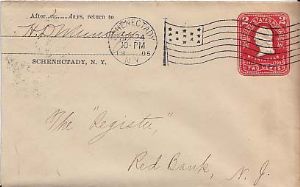 After days, return to
SCHENECTADY, N. Y.
SCHENECTADY
10-PM
N.Y.
2
2
The "Register",
Red Bank, N. J.